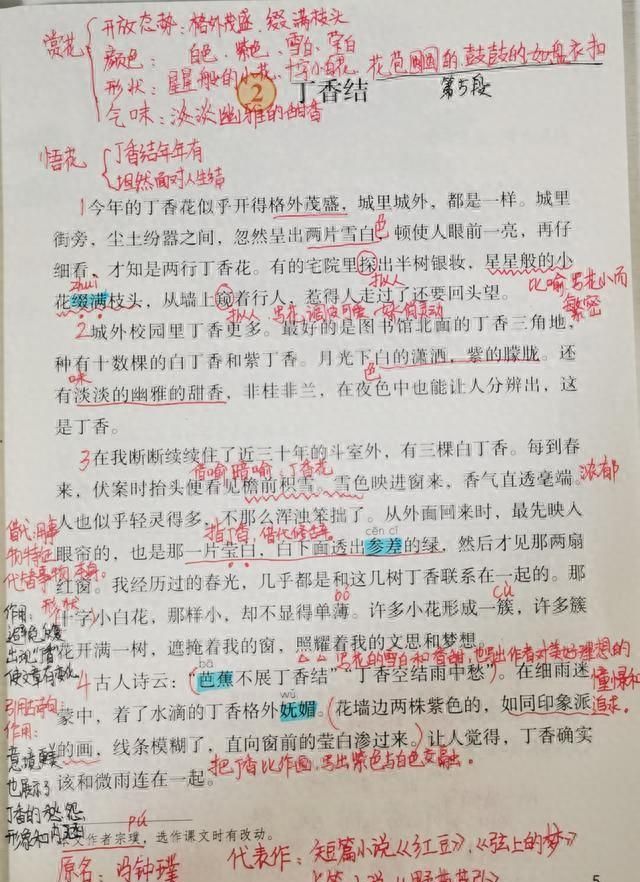 赏花
开放态势：格外茂盛，缀满枝头
颜色：白色、紫色、雪白、莹白
形状：星星般的小花、十字小白花、花苞圆圆的，鼓鼓的，如盘衣扣
气味：淡淡幽雅的甜香
第5段
2 丁香结
悟花
丁香结年年有
坦然面对人生结
1今年的丁香花似乎开得格外茂盛，城里城外，都是一样。城里
街旁，尘土纷嚣之间，忽然呈出两片雪白，顿使人眼前一亮，再仔
色
细看，才知是两行丁香花。有的宅院里探出半树银妆，星星般的小
zhuì
拟人
花缀满枝头，从墙上窥着行人，惹得人走过了还要回头望。
比喻，写花小而
繁密
拟人
2城外校园里丁香更多。最好的是图书馆北面的丁香三角地，
种有十数棵的白丁香和紫丁香。月光下白的潇洒，紫的朦胧。还
味
色
有淡淡的幽雅的甜香，非桂非兰，在夜色中也能让人分辨出，这
是丁香。
3在我断断续续住了近三十年的斗室外，有三棵白丁香。每到春
借喻 暗喻：丁香花
来，伏案时抬头便看见檐前积雪。雪色映进窗来，香气直透毫端。
浓郁
人也似乎轻灵得多，不那么浑浊笨拙了。从外面回来时，最先映入
指丁香，借代修辞
cēn cī
眼帘的，也是那一片莹白，白下面透出参差的绿，然后才见那两扇
红窗。我经历过的春光，几乎都是和这几树丁香联系在一起的。那
形状
bó
cù
十字小白花，那样小，却不显得单薄。许多小花形成一簇，许多簇
花开满一树，遮掩着我的窗，照耀着我的文思和梦想。
写花的雪白和香甜，也写出作者对美好理想的
憧憬和
追求。
bā
4古人诗云：“芭蕉不展丁香结”“丁香空结雨中愁”。在细雨迷
wǔ
蒙中，着了水滴的丁香格外妩媚。花墙边两株紫色的，如同印象派
的画，线条模糊了，直向窗前的莹白渗过来。让人觉得，丁香确实
把丁香比作画，写出紫色与白色交融。
该和微雨连在一起。
借代：用事
物特色
代替事物本身。
作用：
引用古诗句
作用：
也展示了
丁香的愁怨
pú
本文作者宗璞，选作课文时有改动。
原名：冯钟璞
代表作：短篇小说《红豆》，《弦上的梦》
5